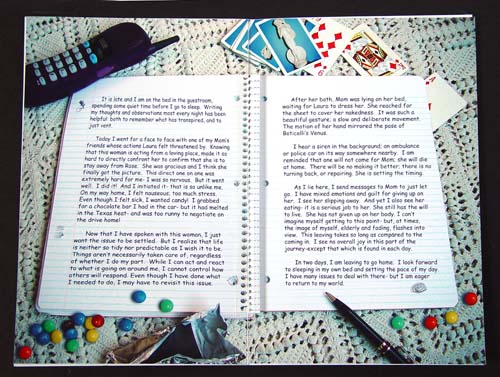 It is late and I am on the bed in the guestroom,
spending some quiet time before I go to sleep. Writing
my thoughts and observations most every night has been
helpful both to remember what has transpired, and to
just vent.
Today I went for a face to face with one of my Mom's
friends whose actions Laura felt threatened by. Knowing
that this woman is acting from a loving place, made it so
hard to directly confront her to confirm that she is to
stay away from Rose. She was gracious and I think she
finally got the picture. This direct one on one was
extremely hard for me- I was so nervous. But it went
well. I did it! And I initiated it- that is so unlike me.
On my way home, I felt nauseous, too much stress.
Even though I felt sick, I wanted candy! I grabbed
for a chocolate bar I had in the car- but it had melted
in the Texas heat- and was too runny to negotiate on
the drive home!
Now that I have spoken with this woman, I just
want the issue to be settled. But I realize that life
is neither so tidy nor predictable as I wish it to be.
Things aren't necessarily taken care of, regardless
of whether I do my part. While I can act and react
to what is going on around me, I cannot control how
others will respond. Even though I have done what
I needed to do, I may have to revisit this issue.
After her bath, Mom was lying on her bed,
waiting for Laura to dress her. She reached for
the sheet to cover her nakedness. It was such a
beautiful gesture, a slow and deliberate movement.
The motion of her hand mirrored the pose of
Boticelli's Venus.
I hear a siren in the background; an ambulance
or police car on its way somewhere nearby. I am
reminded that one will not come for Mom; she will die
at home. There will be no making it better; there is no
turning back, or repairing. She is setting the timing.
As I lie here, I send messages to Mom to just let
go. I have mixed emotions and guilt for giving up on
her. I see her slipping away. And yet I also see her
eating- it is a serious job to her. She still has the will
to live. She has not given up on her body. I can't
imagine myself getting to this point- but, at times,
the image of myself, elderly and fading, flashes into
view. This leaving takes so long as compared to the
coming in. I see no overall joy in this part of the
journey-except that which is found in each day.
In two days, I am leaving to go home. I look forward
to sleeping in my own bed and setting the pace of my day
I have many issues to deal with there- but I am eager
to return to my world.